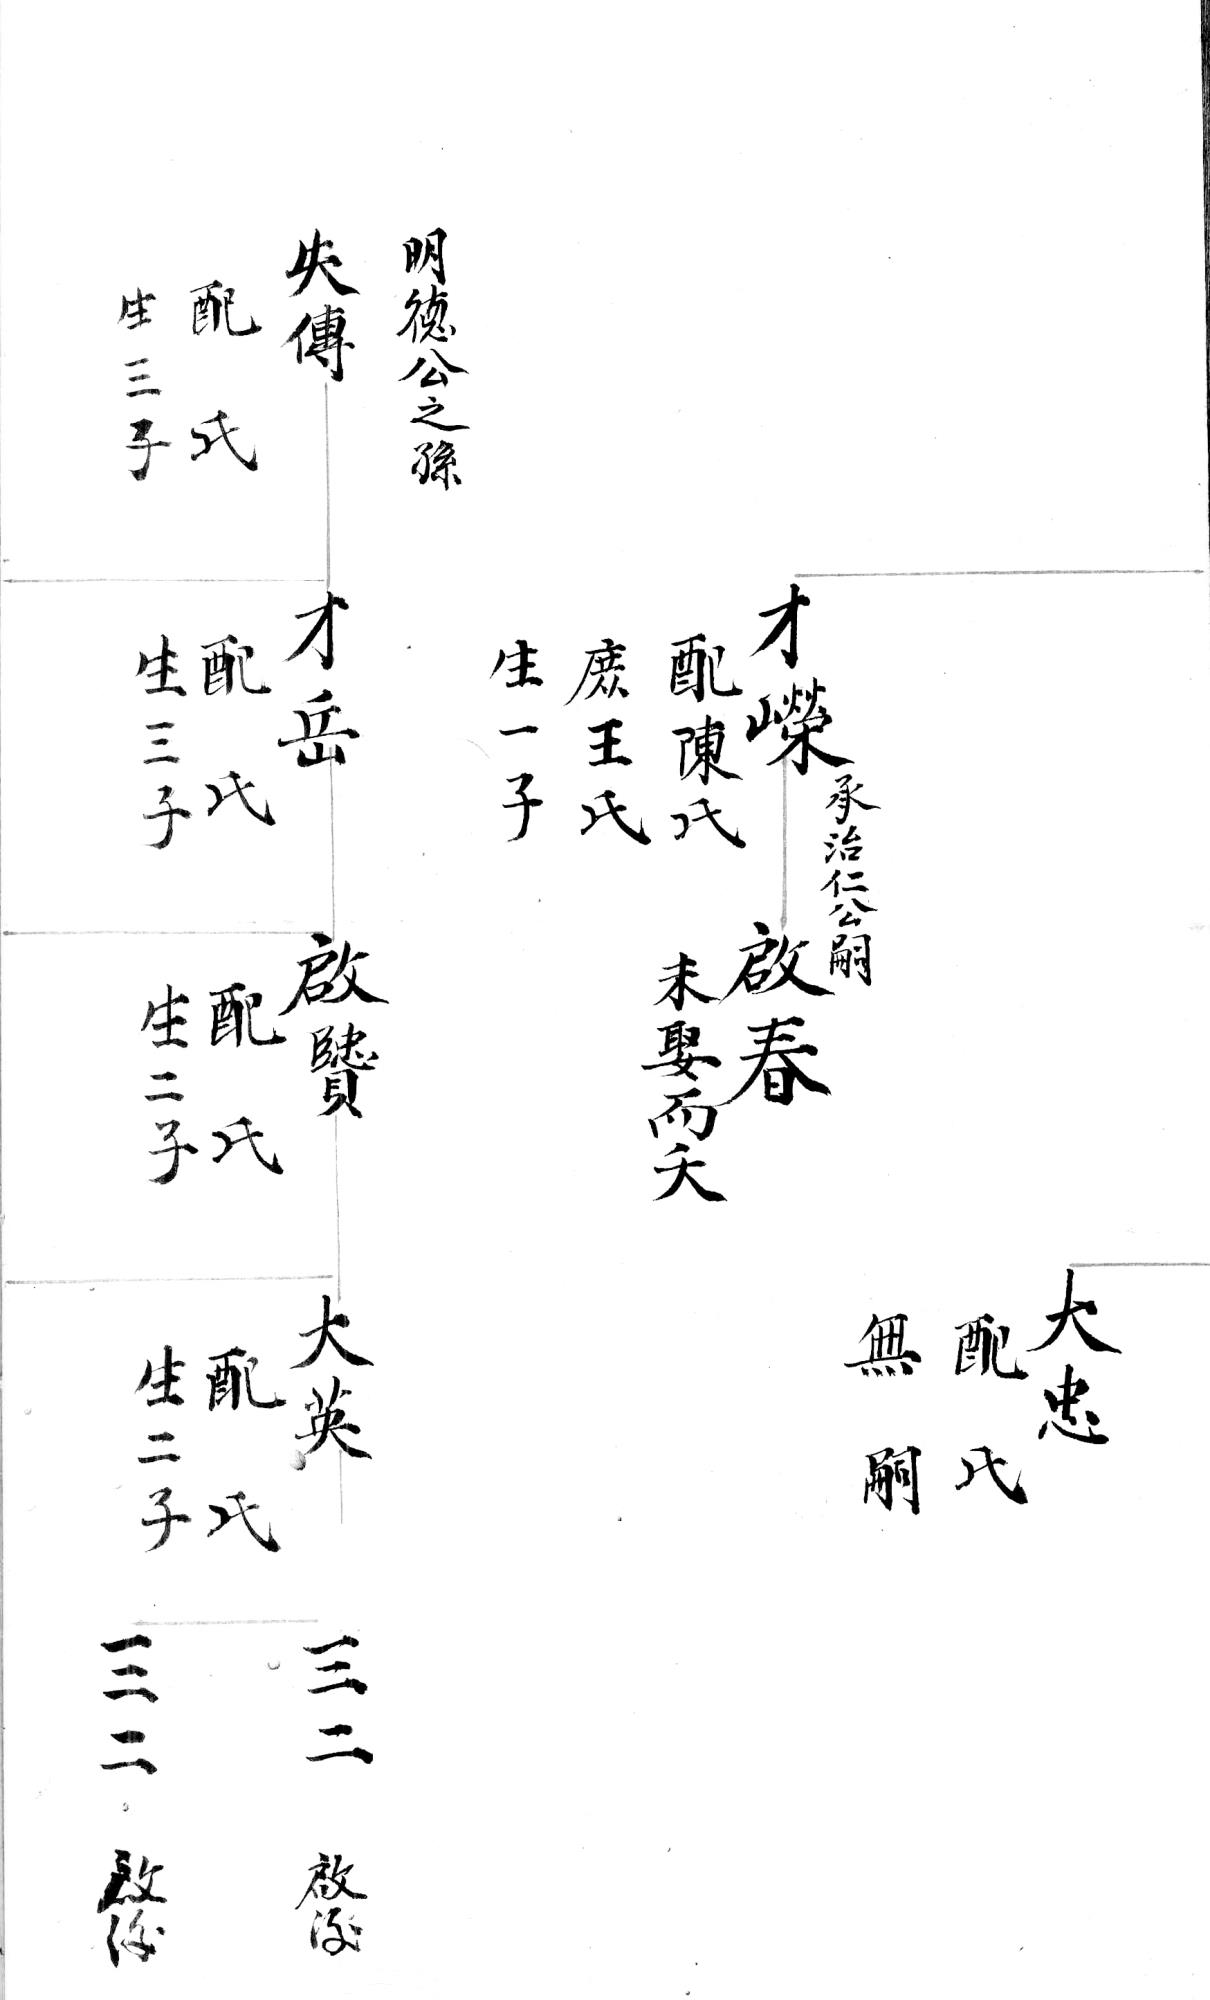 大忠
配 氏
無嗣
承治仁公嗣
才嶸
配陳氏
庶王氏
生一子
啟春
未娶而夭
明德公之孫
失傳
配 氏
生三子
才岳
配 氏
生三子
啟
配 氏
生二子
大英
配 氏
生二子
三二
啟
三二